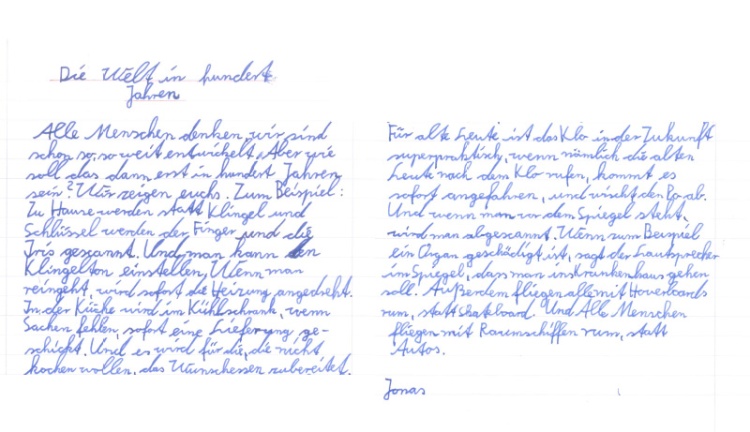 Die Welt in hundert
Jahren
Alle Menschen denken, wir sind
schon so, so weit entwickelt. Aber wie
soll das dann erst in hundert Jahren
sein? Wir zeigen euchs. Zum Beispiel:
Zu Hause werden statt Klingel und
Schlüssel werden der Finger und die
Iris gescannt. Und man kann den
Klingelton einstellen. Wenn man
reingeht, wird sofort die Heizung angedreht.
In der Küche wird im Kühlschrank, wenn
Sachen fehlen, sofort eine Lieferung ge-
schickt. Und es wird für die, die nicht
kochen wollen, das Wunschessen zubereitet.
Für alte Leute ist das Klo in der Zukunft
superpraktisch, wenn nämlich die alten
Leute nach dem Klo rufen, kommt es
sofort angefahren, und wischt den Po ab.
Und wenn man vor dem Spiegel steht,
wird man abgescannt. Wenn zum Beispiel
ein Organ geschädigt ist, sagt der Lautsprecher
im Spiegel, dass man ins krankenhaus gehen
soll. Außerdem fliegen alle mit Hoverboards
rum, statt skateboard. Und Alle Menschen
fliegen mit Raumschiffen rum, statt
Autos.
Jonas